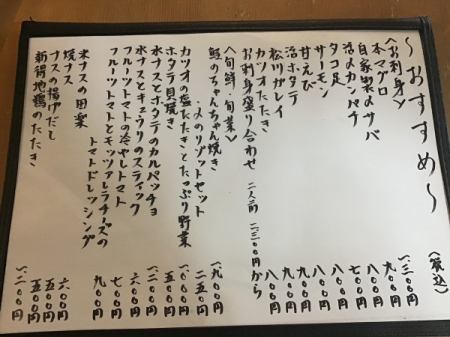 〜おすすめ〜
(税込)
〈お刺身〉
本マグロ 一、三〇〇円
自家製〆サバ 九〇〇円
活〆カンパチ 八〇〇円
タコ足 七〇〇円
サーモン 八〇〇円
甘えび 八〇〇円
活ホタテ 九〇〇円
松川ガレイ 九〇〇円
カツオたたき 八〇〇円
お刺身盛り合わせ 二人前 二、三〇〇円から
〈旬鮮・旬菜〉
鮭のちゃんちゃん焼き 一、九〇〇円
〆のリゾットセット 二五〇円
カツオの塩たたきとたっぷり野菜 一、〇〇〇円
ホタテ貝焼き 五〇〇円
水ナスとホタテのカルパッチョ 一、二〇〇円
水ナスとキュウリのスティック 六〇〇円
フルーツトマトの冷やしトマト 七〇〇円
フルーツトマトとモッツァレラチーズの
トマトドレッシング 九〇〇円
米ナスの田楽 六〇〇円
焼ナス 五〇〇円
ナスの揚げだし 五〇〇円
新得地鶏のたたき 一、二〇〇円